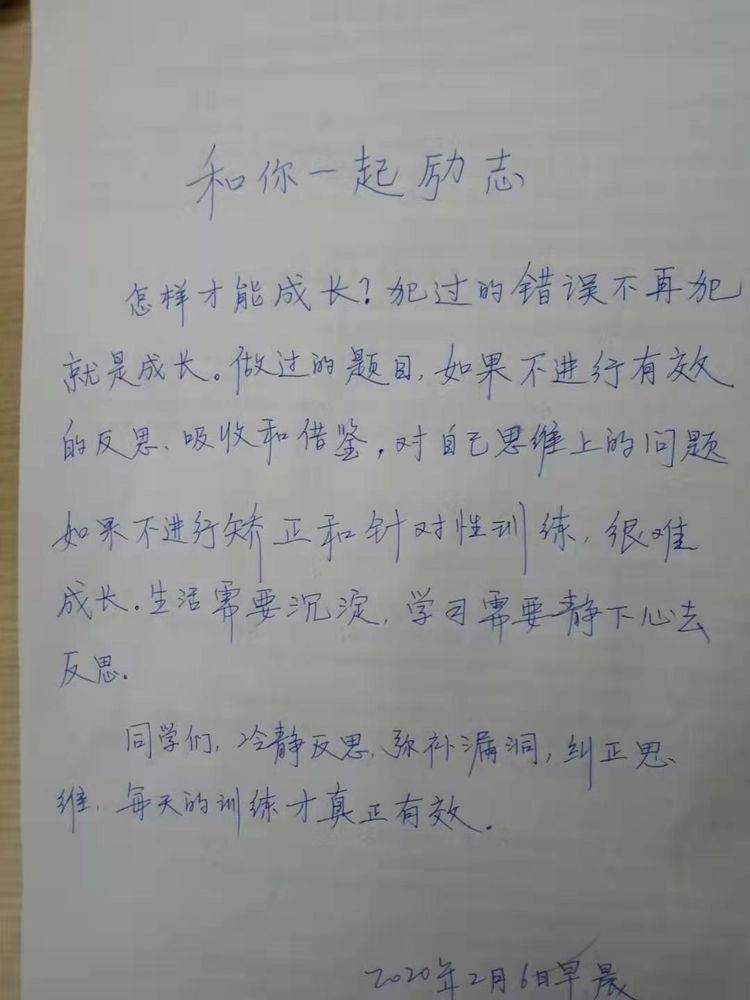 和你一起励志
怎样才能成长?犯过的错误不再犯
就是成长。做过的题目,如果不进行有效
的反思、吸收和借鉴,对自己思维上的问题
如果不进行矫正和针对性训练,很难
成长。生活需要沉淀,学习需要静下心去
反思.
同学们,冷静反思,弥补漏洞,纠正思
维,每天的训练才真正有效。
2020年2月6日早晨